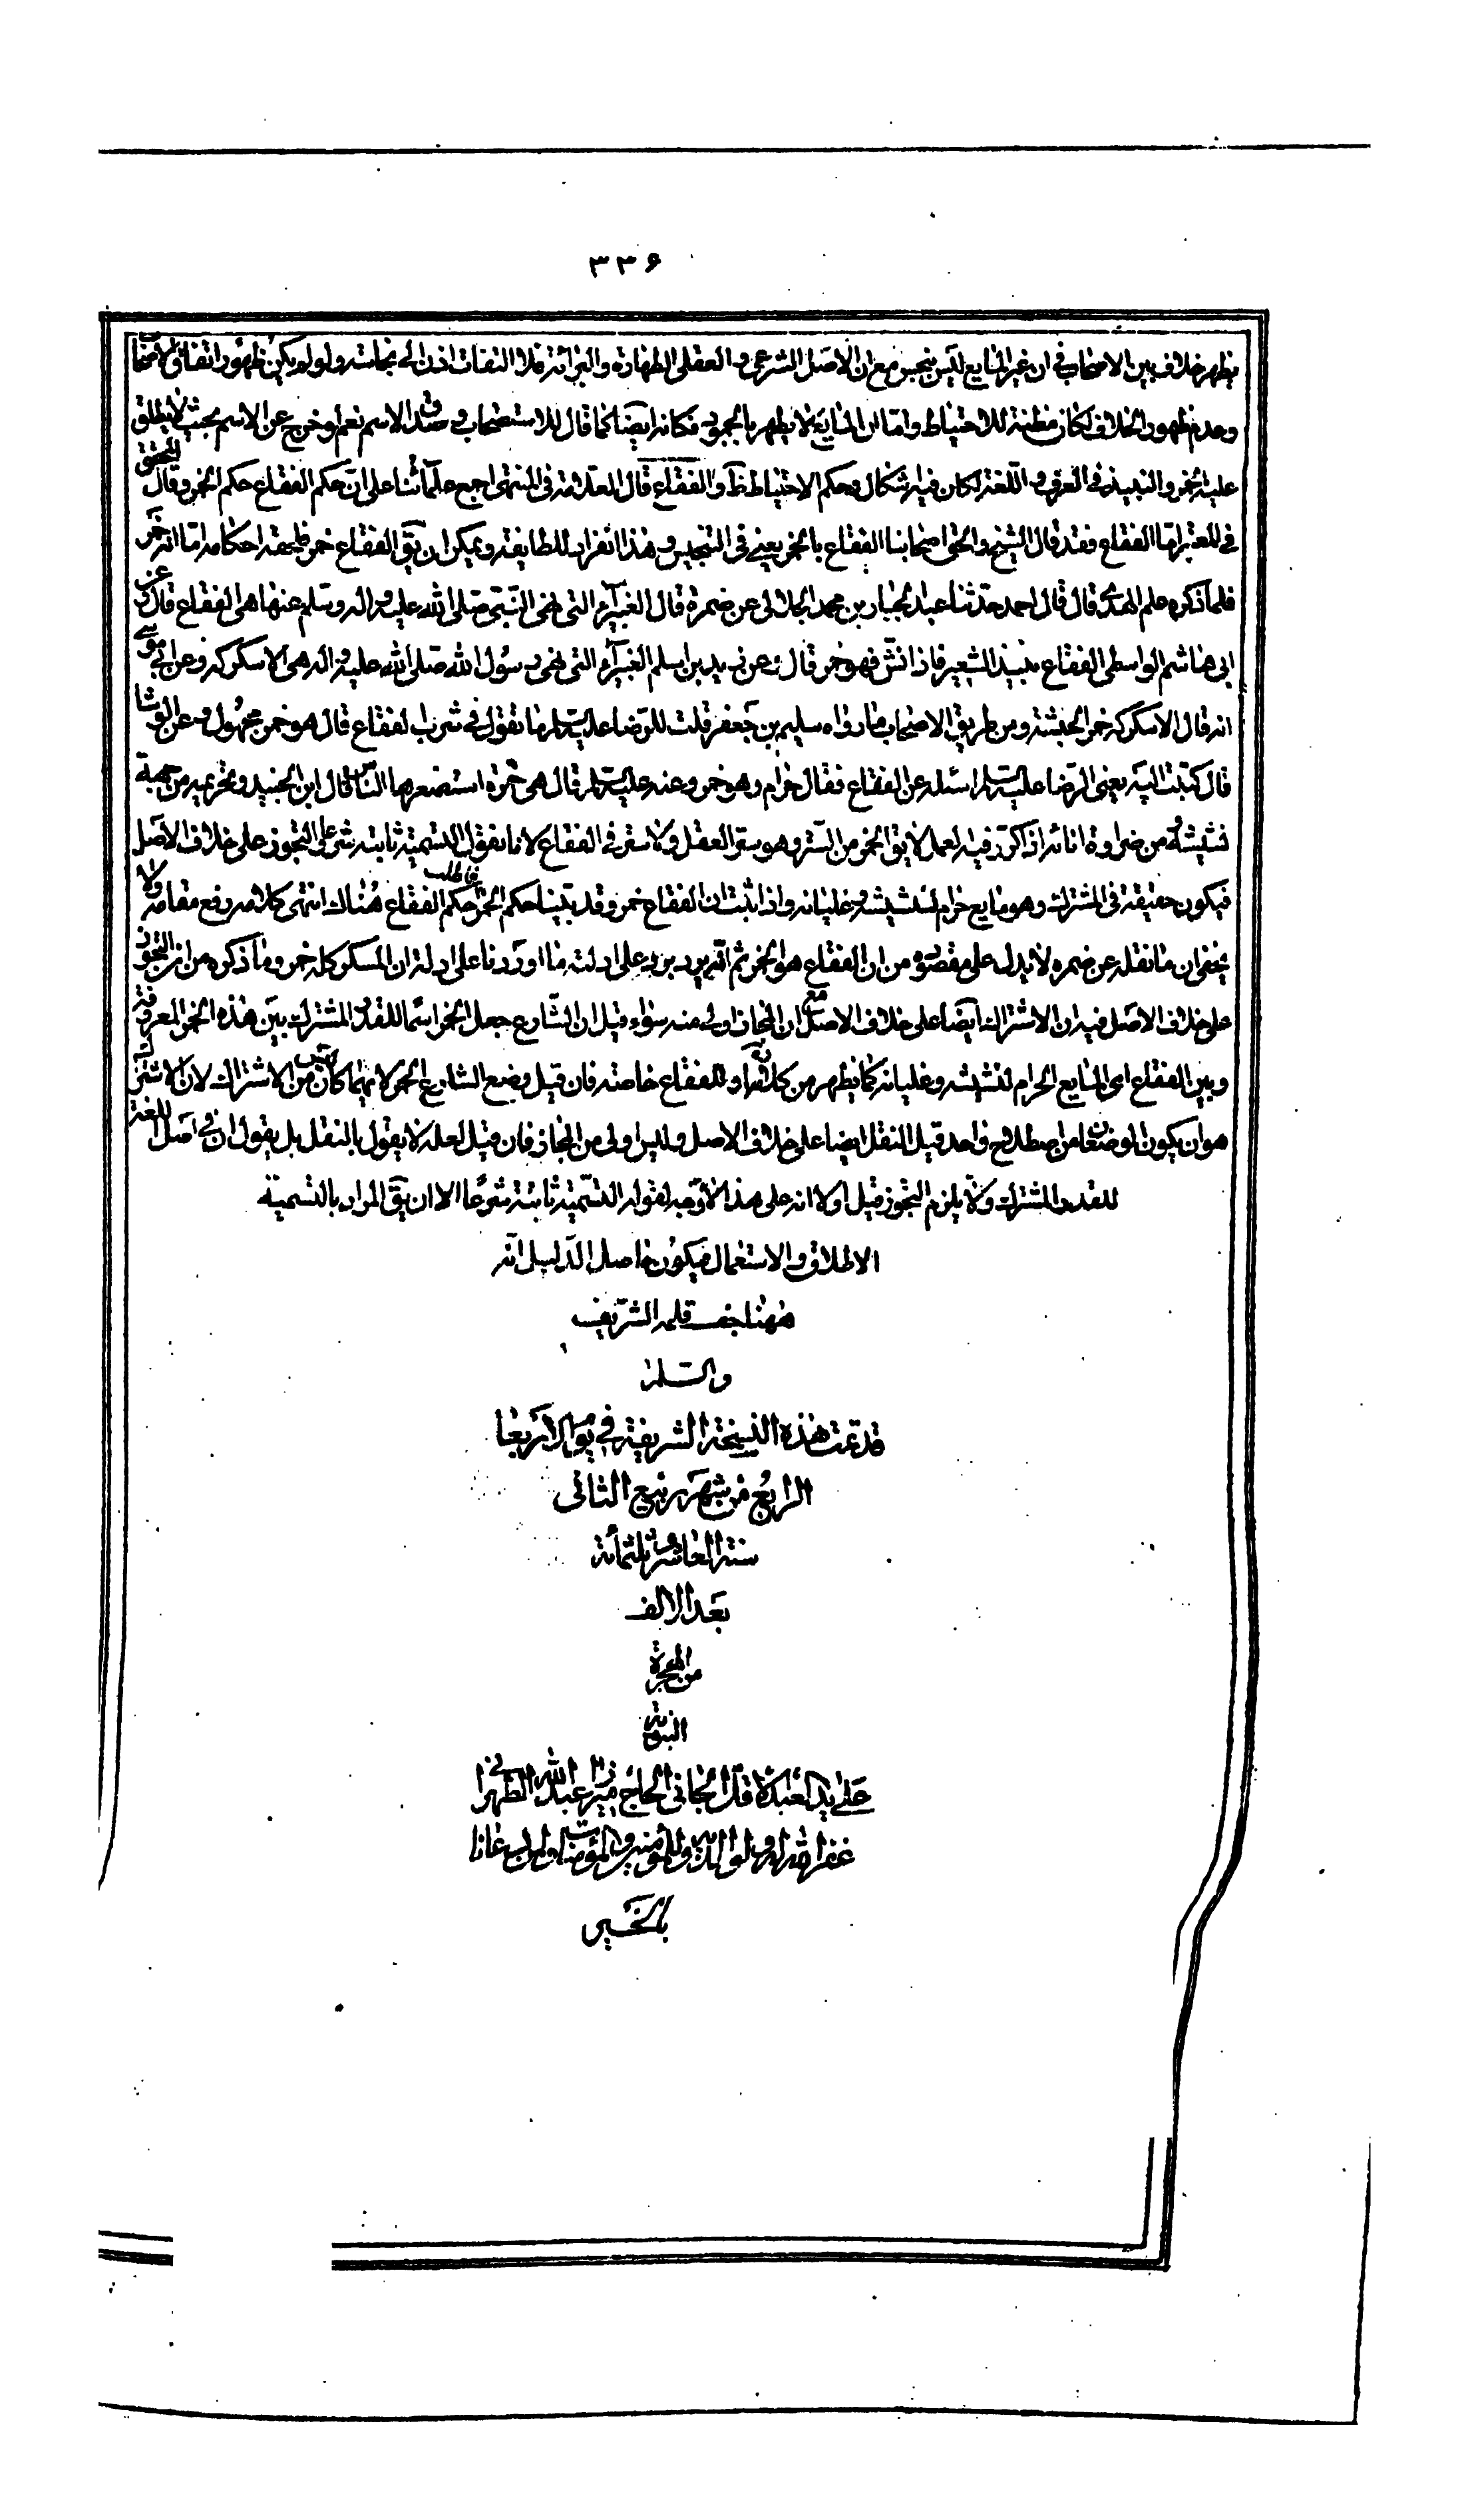 ٣٣۶
يظهر خلاف بين الاصحاب في ان غير المايع ليس بنجس مع ان الاصل الشرعي و العقلي الطهارة والبرائة فلا التفات اذن الى نجاسته ولو لم يكن ظهور اتفاق الاصحاب
وعدم ظهور الخلاف لكان مظنة للاحتياط واما ان المايع لا يطهر بالجمود فكانه ايضا كما قال للاستصحاب و صدق الاسم نعم لو خرج عن الاسم بحيث لا يطلق
عليه الخمر والنبيذ في العرف و اللغة لكان فيه اشكال وحكم الاحتياط ظ والفقاع قال العلامة في المنتهى اجمع علمائنا على ان حكم الفقاع حكم الخمر وقال المحقق
في المعتبر اما الفقاع فقد قال الشيخ والحق اصحابنا الفقاع بالخمر يعني في التنجيس و هذا انفراد للطايفة ويمكن ان يق الفقاع خمر فليحقه احكامه اما انه خمر
فلما ذكره علم الهدى قال قال احمد حدثنا عبد الجبار بن محمد الخطابي عن ضمرة قال الغبيراء التي نهى النبي صلى الله عليه واله وسلم عنها هي الفقاع قال وعن
ابي هاشم الواسطي الفقاع نبيذ الشعير فاذا نش فهو خمر قال وعن زيد بن اسلم الغبيراء التي نهى رسول الله صلى الله عليه واله هي الاسكركه وعن ابي موسى
انه قال الاسكركه خمر الحبشة ومن طريق الاصحاب ما رواه سليم بن جعفر قلت للرضا عليه السلام ما تقول في شرب الفقاع قال هو خمر مجهول وعن الوشا
قال كتبت اليه يعني الرضا عليه السلام اسئله عن الفقاع فقال حرام وهو خمر وعنه عليه السلام قال هي خمرة استصغرها الناس قال ابن الجنيد وتحريمه من جهة
نشيشه ومن ضراوة انائه اذا كرر فيه العمل لا يق الخمر من الستر وهو ستر العقل ولا ستر في الفقاع لانا نقول التسمية ثابتة شرعا والتجوز على خلاف الاصل
فيكون حقيقة في المشترك وهو مايع حرام لنشيشه و غليانه واذا ثبت ان الفقاع خمر وقد بينا حكم الخمر فاطلب حكم الفقاع هناك انتهى كلامه رفع مقامه ولا
يخفى ان ما نقله عن ضمره لا يدل على مقصوده من ان الفقاع هو الخمر ثم انه يرد على ادلته ما اوردنا على ادلة ان المسكر كله خمر وما ذكره من ان التجوز
على خلاف الاصل فيه ان الاشتراك ايضا على خلاف الاصل مع ان المجاز اولى منه سواء قيل ان الشارع جعل الخمر اسما للقدر المشترك بين هذه الخمر المعروفة
وبين الفقاع اي المايع الحرام لنشيشه و غليانه كما يظهر من كلامه او للفقاع خاصة فان قيل وضع الشارع الخمر لايهما كان ليس من الاشتراك لان الاشتراك
هو ان يكون الوضعان من اصطلاح واحد قيل النقل ايضا على خلاف الاصل وليس اولى من المجاز فان قيل لعله لا يقول بالنقل بل يقول ان في اصل اللغة
للقدر المشترك ولا يلزم التجوز قيل اولا انه على هذا لا وجه لقوله التسمية ثابتة شرعا الا ان يق المراد بالتسمية
الاطلاق والاستعمال فيكون حاصل الدليل انه
ههنا جف قلمه الشريف
والسلام
قد تمت هذه النسخة الشريفة في يوم الاربعا
الرابع من شهر ربيع الثاني
سنة العاشر وثلثمائة
بعد الالف
من الهجرة
النبوية
على يد العبد الاقل الجاني الحاج ميرزا عبد الله الطهراني
غفر الله له ولوالديه وللمؤمنين والمؤمنات ولمن دعانا
بالخير